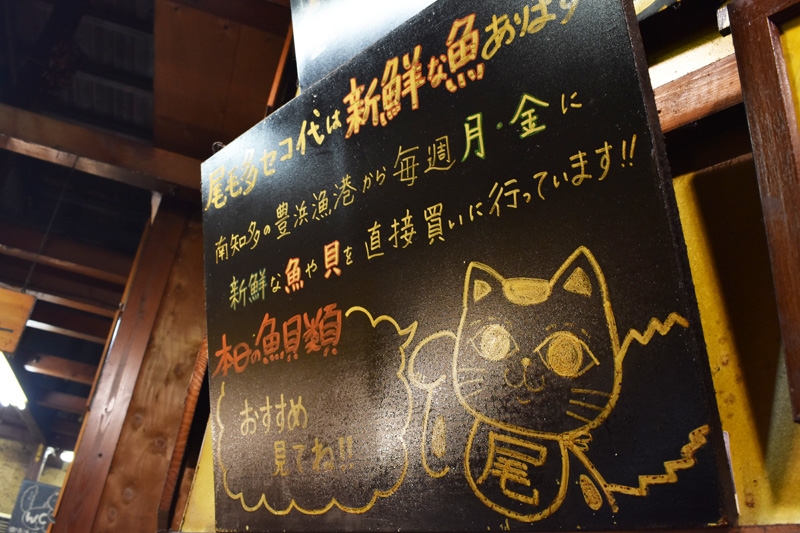 尾毛多セコ代は新鮮な魚あります
南知多の豊浜漁港から毎週月・金に
新鮮な魚や貝を直接買いに行っています!!
本日の魚貝類
おすすめ
見てね!!
尾